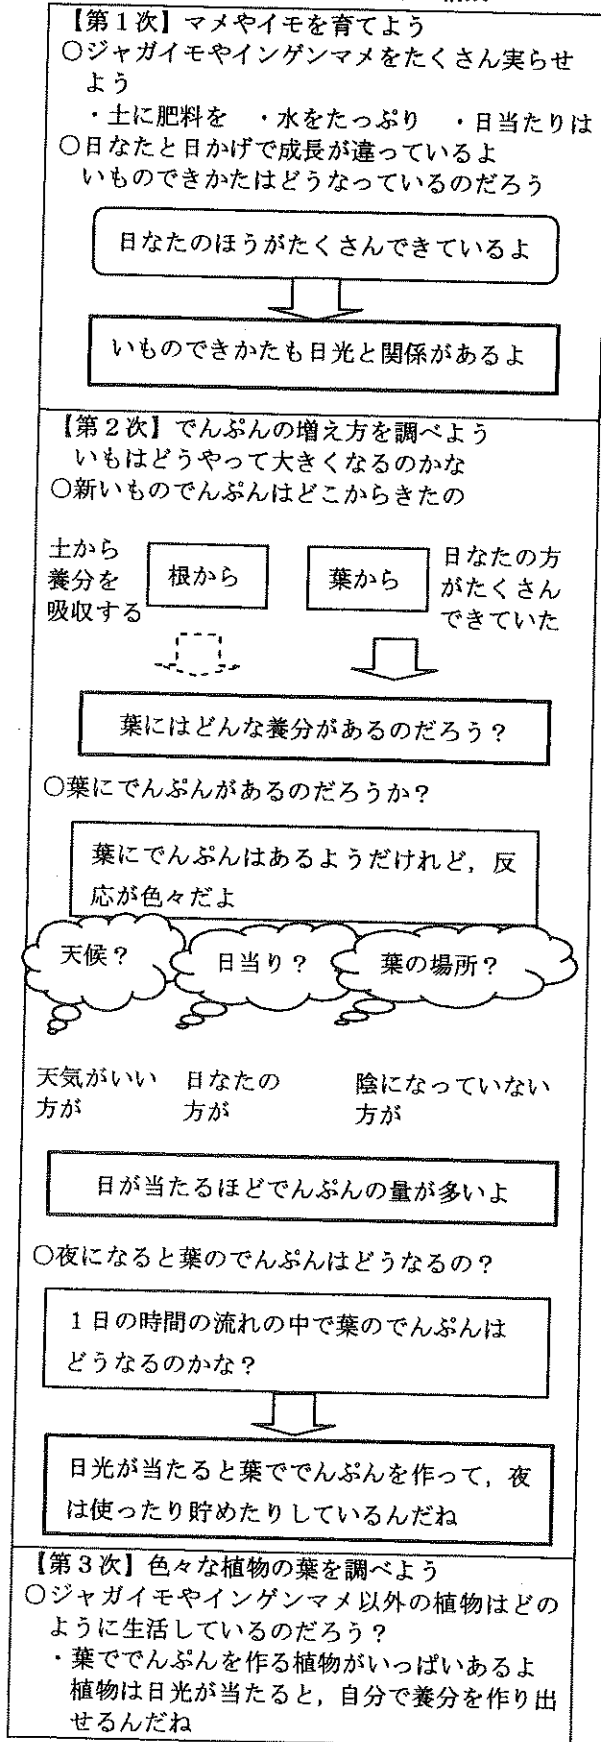 【第1次】マメやイモを育てよう
○ジャガイモやインゲンマメをたくさん実らせ
よう
・土に肥料を ・水をたっぷり ・日当たりは
○日なたと日かげで成長が違っているよ
いものできかたはどうなっているのだろう
日なたのほうがたくさんできているよ
いものできかたも日光と関係があるよ
【第2次】でんぷんの増え方を調べよう
いもはどうやって大きくなるのかな
○新いものでんぷんはどこからきたの
土から
養分を
吸収する
根から
葉から
日なたの方
がたくさん
できていた
葉にはどんな養分があるのだろう？
○葉にでんぷんがあるのだろうか？
葉にでんぷんはあるようだけれど，反
応が色々だよ
天候？
日当り？
葉の場所？
天気がいい
方が
日なたの
方が
陰になっていない
方が
日が当たるほどでんぷんの量が多いよ
○夜になると葉のでんぷんはどうなるの？
1日の時間の流れの中で葉のでんぷんは
どうなるのかな？
日光が当たると葉ででんぷんを作って，夜
は使ったり貯めたりしているんだね
【第3次】色々な植物の葉を調べよう
○ジャガイモやインゲンマメ以外の植物はどの
ように生活しているのだろう？
・葉ででんぷんを作る植物がいっぱいあるよ
植物は日光が当たると，自分で養分を作り出
せるんだね